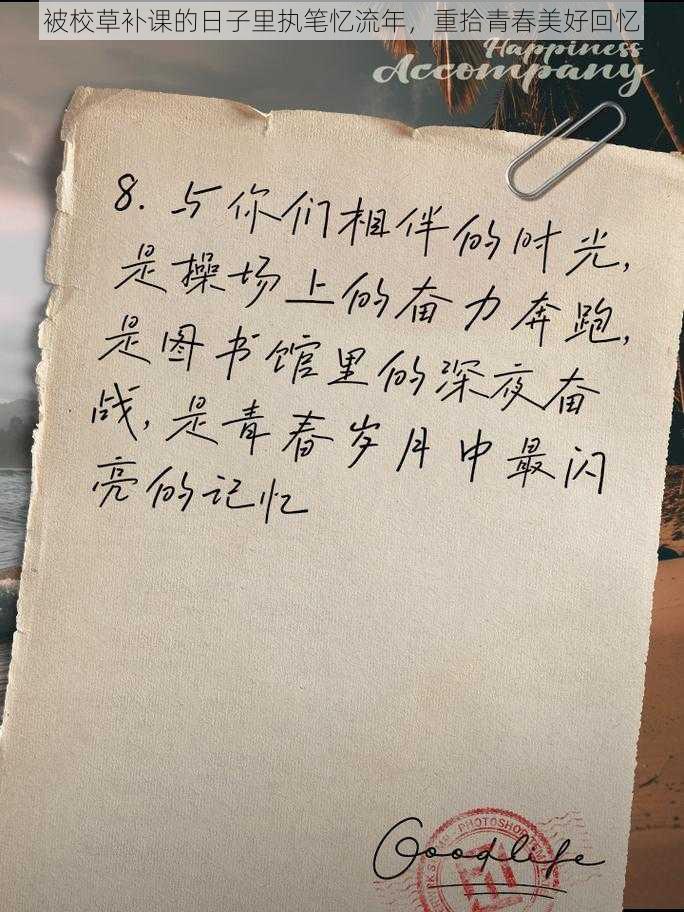 被校草补课的日子里执笔忆流年，重拾青春美好回忆
Happiness
Accompany
8. 与你们相伴的时光,
是操场上的奋力奔跑,
是图书馆里的深夜奋
战, 是青春岁月中最闪
亮的记忆
PHOTOSHOP
Goodlife